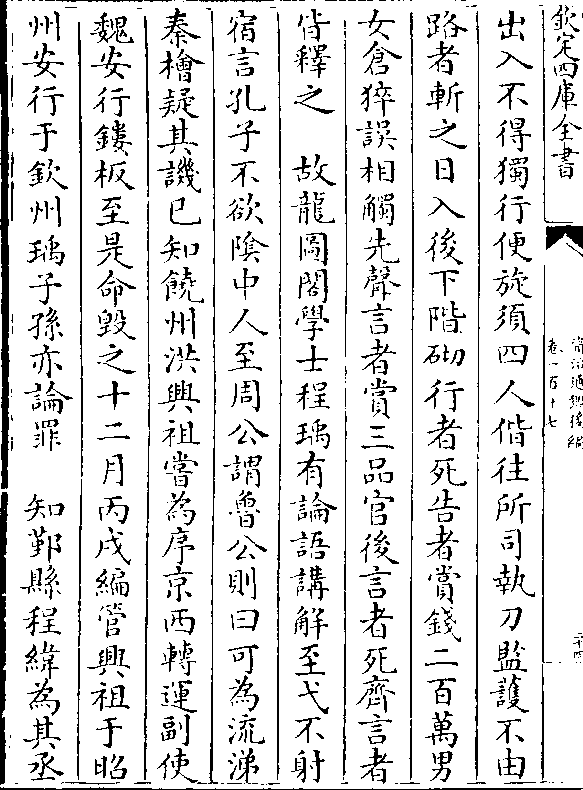 欽定四庫全書
資治通鑑後編
卷一百十七
二十四
出入不得獨行便旋須四人偕往所司執刀監護不由
路者斬之日入後下階砌行者死告者賞錢二百萬男
女倉猝誤相觸先聲言者賞三品官後言者死齊言者
皆釋之　故龍圖閣學士程瑀有論語講解至弋不射
宿言孔子不欲陰中人至周公謂魯公則曰可為流涕
秦檜疑其譏已知饒州洪興祖嘗為序京西轉運副使
魏安行鏤板至是命毀之十二月丙戌編管興祖于昭
州安行于欽州瑀子孫亦論罪　知鄞縣程緯為其丞